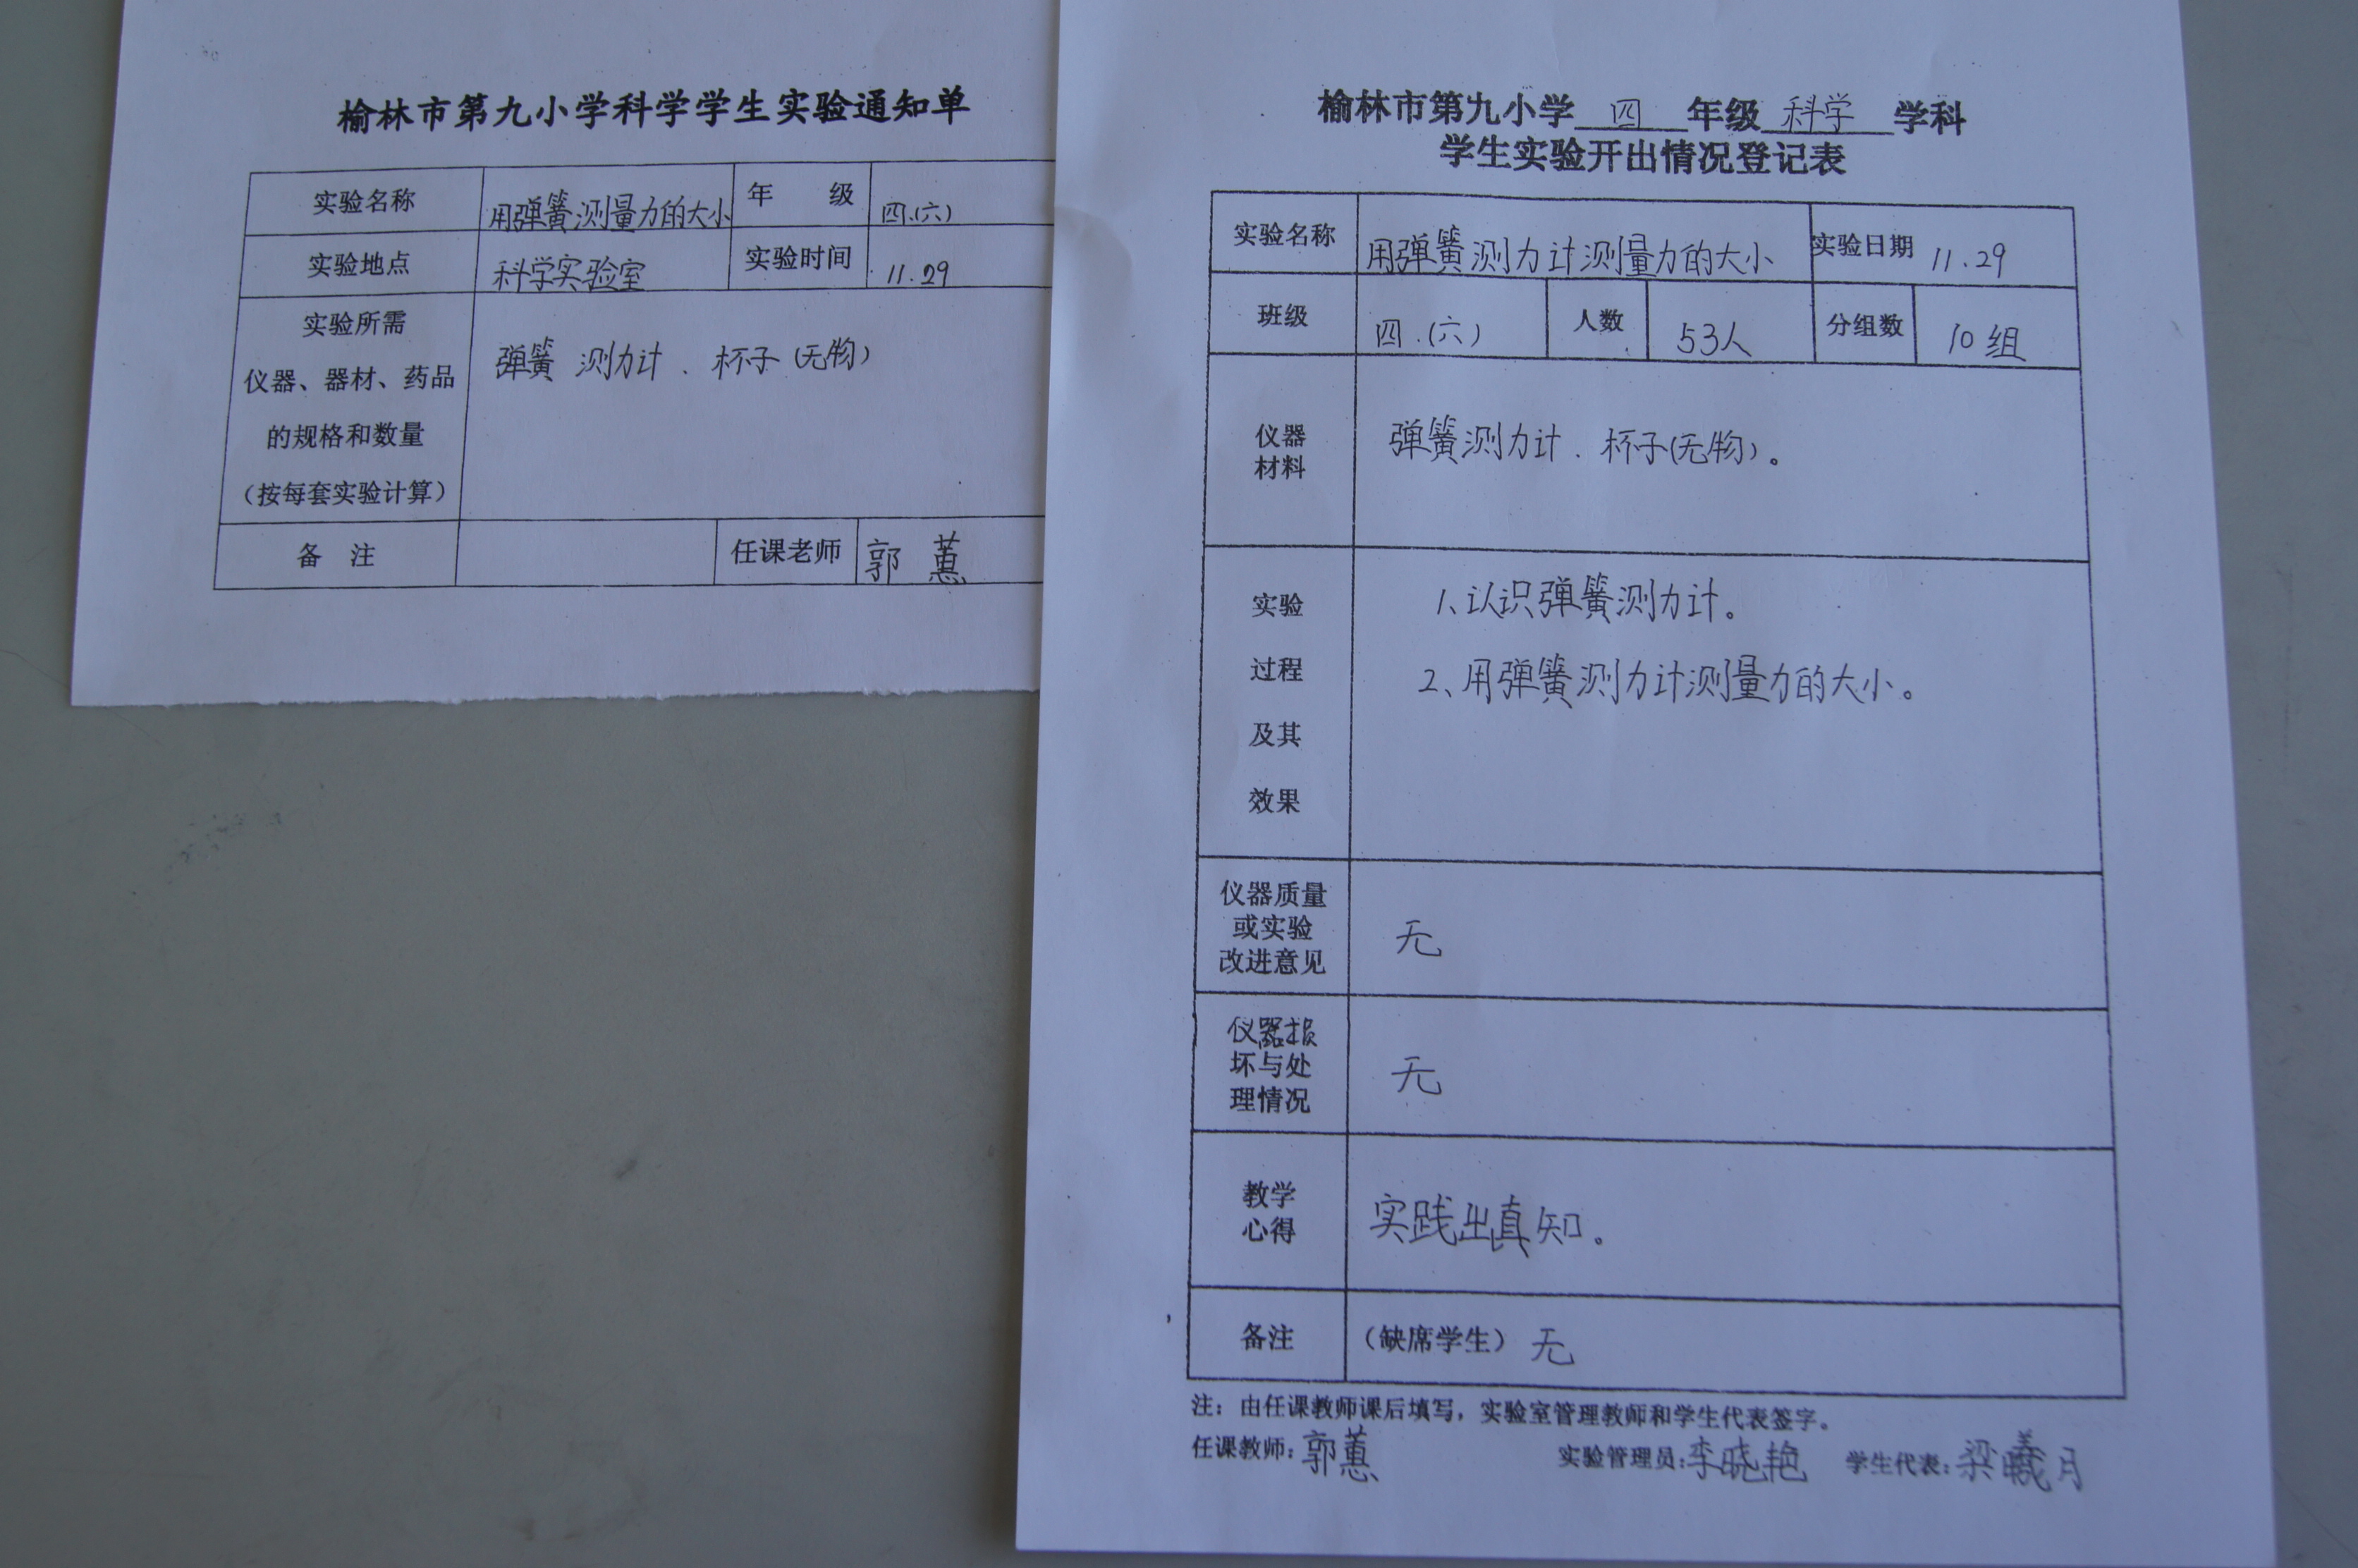 榆林市第九小学科学学生实验通知单
实验名称 用弹簧测量力的大小 年 级 四.(六)
实验地点 科学实验室 实验时间 11.29
实验所需
仪器、器材、药品
的规格和数量
(按每套实验计算)
弹簧 测力计、杯子(无物)
备 注 任课老师 郭蕙
榆林市第九小学 四 年级 科学 学科
学生实验开出情况登记表
实验名称 用弹簧测力计测量力的大小 实验日期 11.29
班级 四.(六) 人数 53人 分组数 10组
仪器
材料
弹簧测力计、杯子(无物)。
实验
过程
及其
效果
1、认识弹簧测力计。
2、用弹簧测力计测量力的大小。
仪器质量
或实验
改进意见
无
仪器损
坏与处
理情况
无
教学
心得
实践出真知。
备注 (缺席学生) 无
注：由任课教师课后填写，实验室管理教师和学生代表签字。
任课教师：郭蕙 实验管理员：李晓艳 学生代表：梁曦月